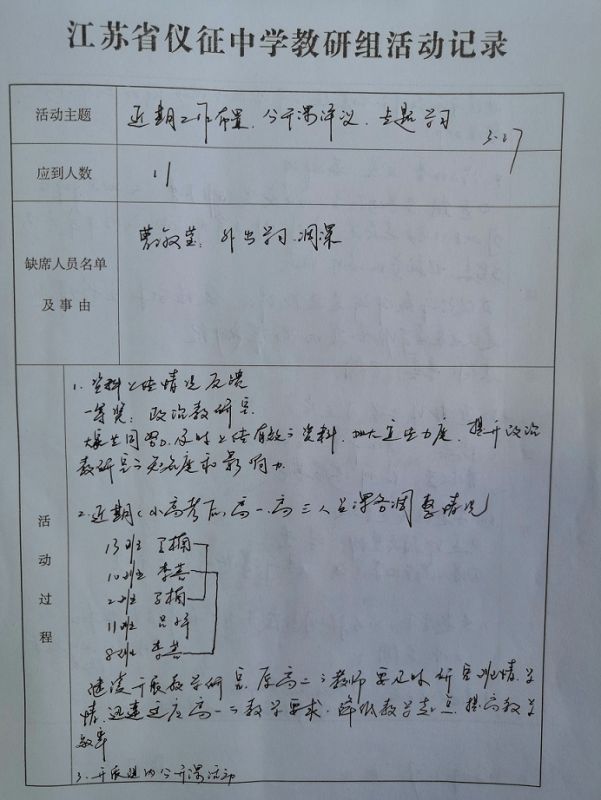 江苏省仪征中学教研组活动记录
活动主题 近期工作布置、公开课评议、专题学习 3.27
应到人数 11
缺席人员名单及事由 外出学习、调课
活动过程
1、资料上传情况反馈
一等奖:政治教研室
大家共同努力,及时上传有效之资料,加大宣传力度,提升政治
教研室之知名度和影响力
2、近期(小高考后)高一、高三人员课务调整情况
13班 丁楠
10班 李芸
2班 丁楠
11班 吕
8班 李芸
继续开展教学研究,原高二之教师要及时研究班情、学
情,迅速适应高一之教学要求,降低教学起点,提高教学
效率
3、开展组内公开课活动